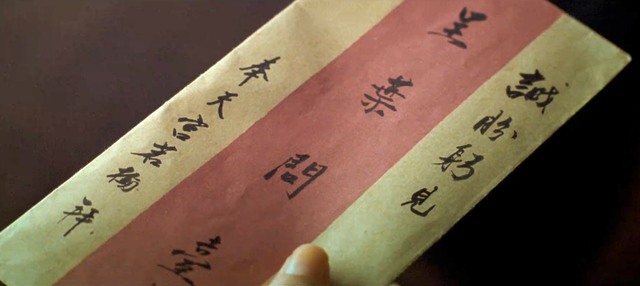 誠盼躬見
呈葉問臺
奉天宮若梅拜